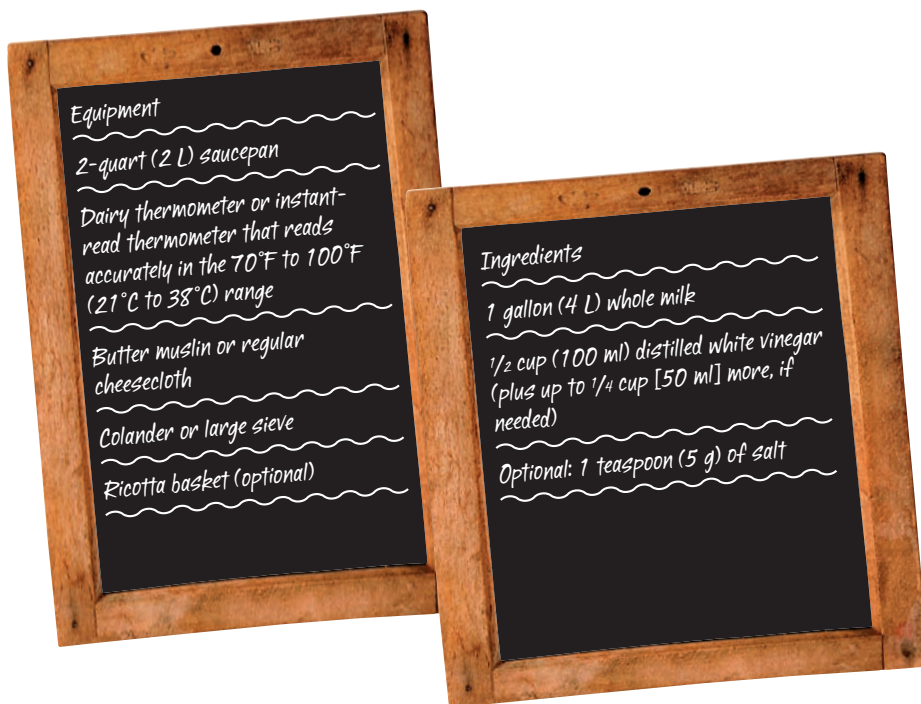 Equipment
2-quart (2 L) saucepan
Dairy thermometer or instant-
read thermometer that reads
accurately in the 70°F to 100°F
(21°C to 38°C) range
Butter muslin or regular
cheesecloth
Colander or large sieve
Ricotta basket (optional)
Ingredients
1 gallon (4 L) whole milk
1/2 cup (100 ml) distilled white vinegar
(plus up to 1/4 cup [50 ml] more, if
needed)
Optional: 1 teaspoon (5 g) of salt